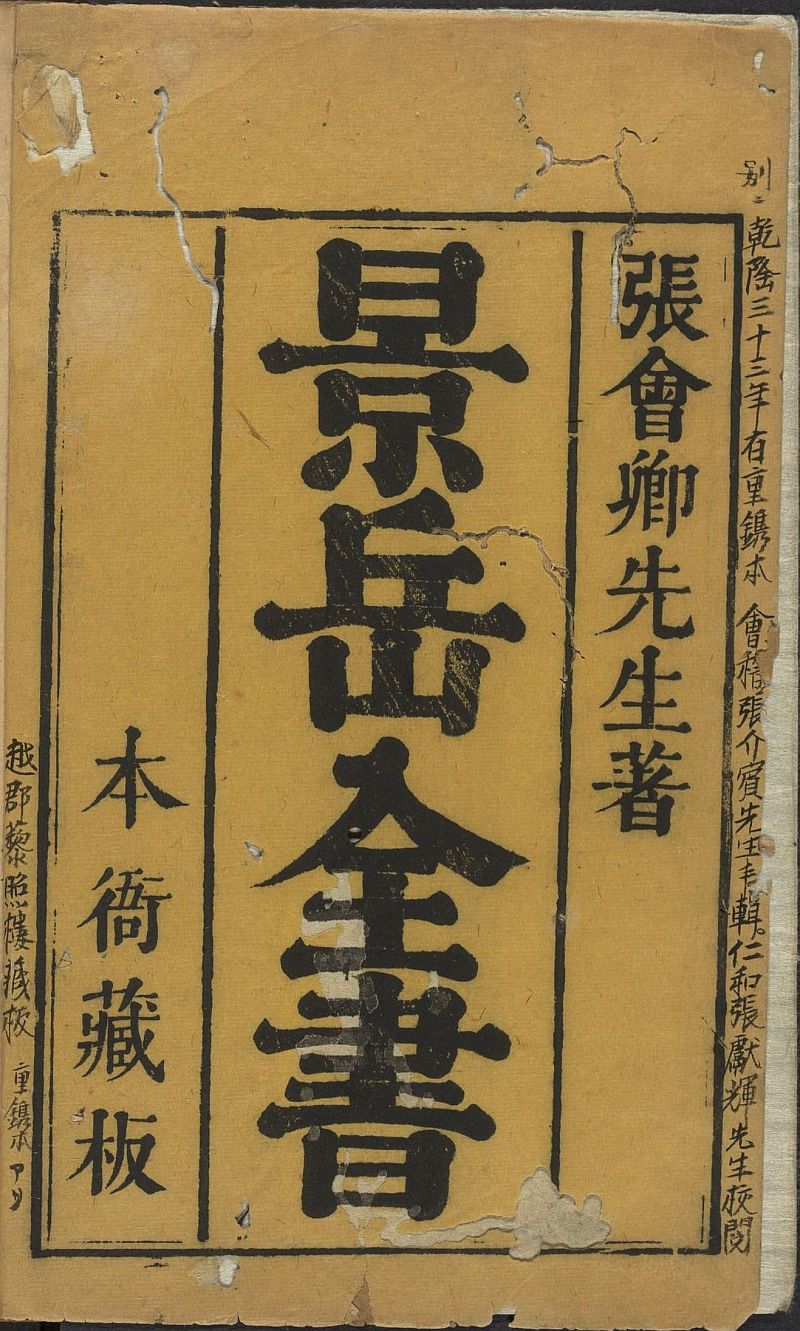 別ニ乾隆三十三年有重鐫本 會稽張介賓先生手輯 仁和張獻輝先生校閱
張會卿先生著
景岳全書
本衙藏板
越郡藜照樓藏板 重鐫本アリ